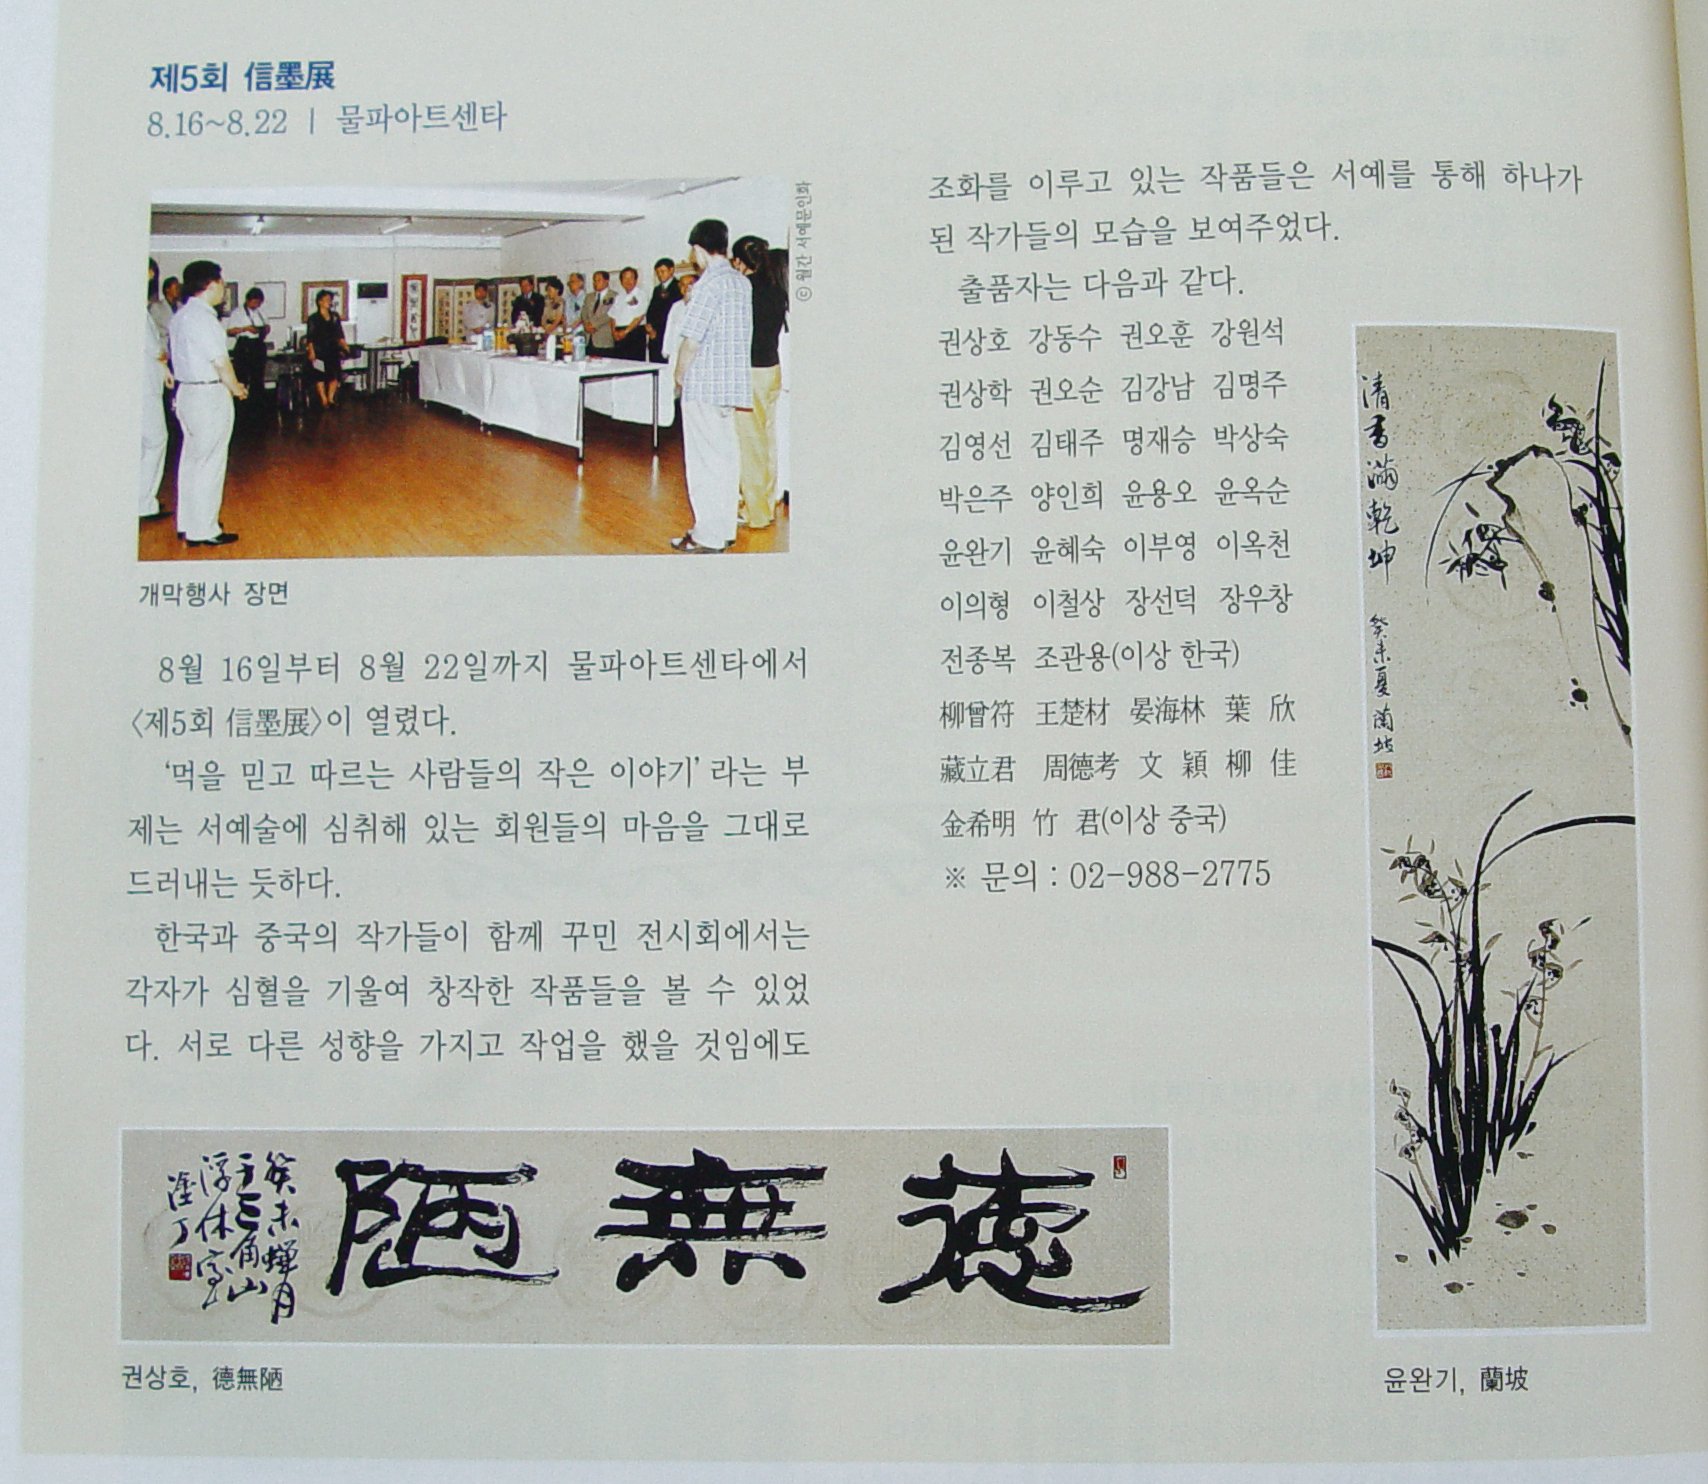 제5회 信墨展
8.16~8.22 | 물파아트센타
ⓒ 월간 서예문인화
개막행사 장면
8월 16일부터 8월 22일까지 물파아트센타에서
〈제5회 信墨展〉이 열렸다.
‘먹을 믿고 따르는 사람들의 작은 이야기’라는 부
제는 서예술에 심취해 있는 회원들의 마음을 그대로
드러내는 듯하다.
한국과 중국의 작가들이 함께 꾸민 전시회에서는
각자가 심혈을 기울여 창작한 작품들을 볼 수 있었
다. 서로 다른 성향을 가지고 작업을 했을 것임에도
조화를 이루고 있는 작품들은 서예를 통해 하나가
된 작가들의 모습을 보여주었다.
출품자는 다음과 같다.
권상호 강동수 권오훈 강원석
권상학 권오순 김강남 김명주
김영선 김태주 명재승 박상숙
박은주 양인희 윤용오 윤옥순
윤완기 윤혜숙 이부영 이옥천
이의형 이철상 장선덕 장우창
전종복 조관용(이상 한국)
柳曾符 王楚材 晏海林 葉 欣
藏立君 周德考 文 穎 柳 佳
金希明 竹 君(이상 중국)
※ 문의 : 02-988-2775
清香滿乾坤
癸未夏 蘭坡
德無陋
癸未蟬月
于三角山
浮休室
塗丁
권상호, 德無陋
윤완기, 蘭坡